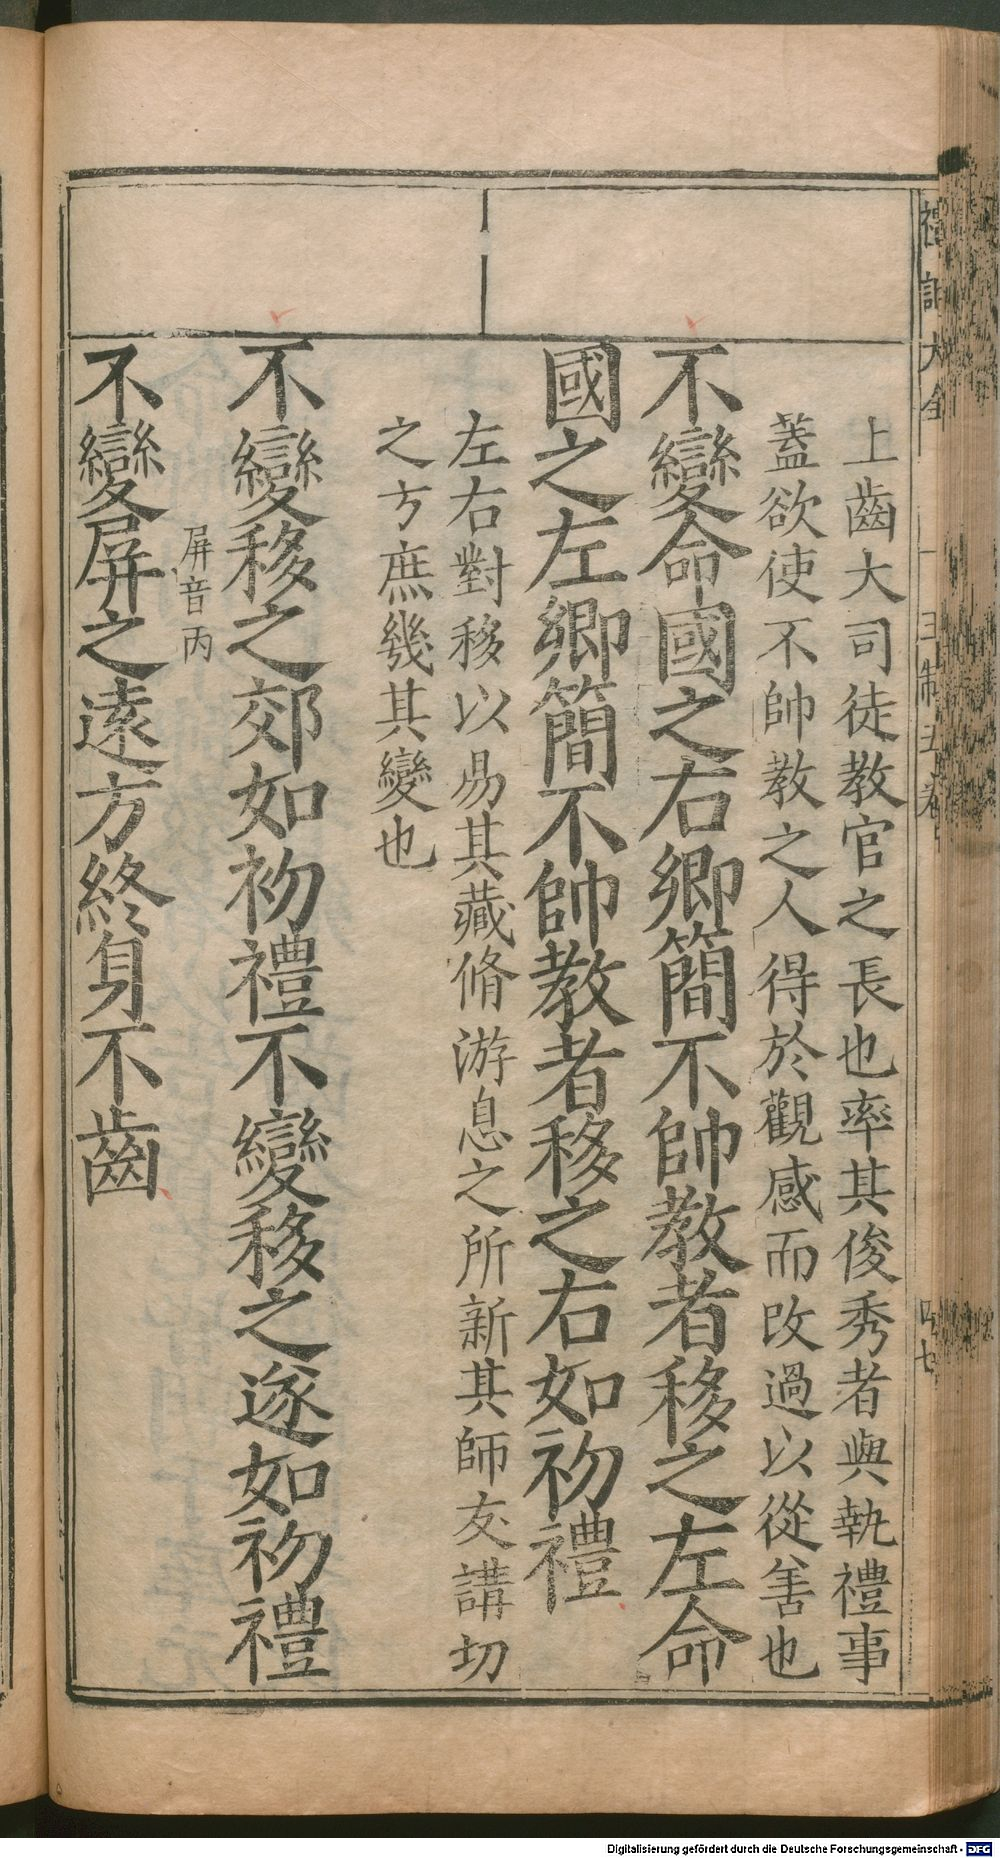 上齒大司徒教官之長也率其俊秀者與執禮事
蓋欲使不帥教之人得於觀感而改過以從善也
不變命國之右鄉簡不帥教者移之左命
國之左鄉簡不帥教者移之右如初禮
左右對移以易其藏脩游息之所新其師友講切
之方庶幾其變也
不變移之郊如初禮不變移之遂如初禮
屏音丙
不變屏之遠方終身不齒
Digitalisierung gefördert durch die Deutsche Forschungsgemeinschaft - DFG